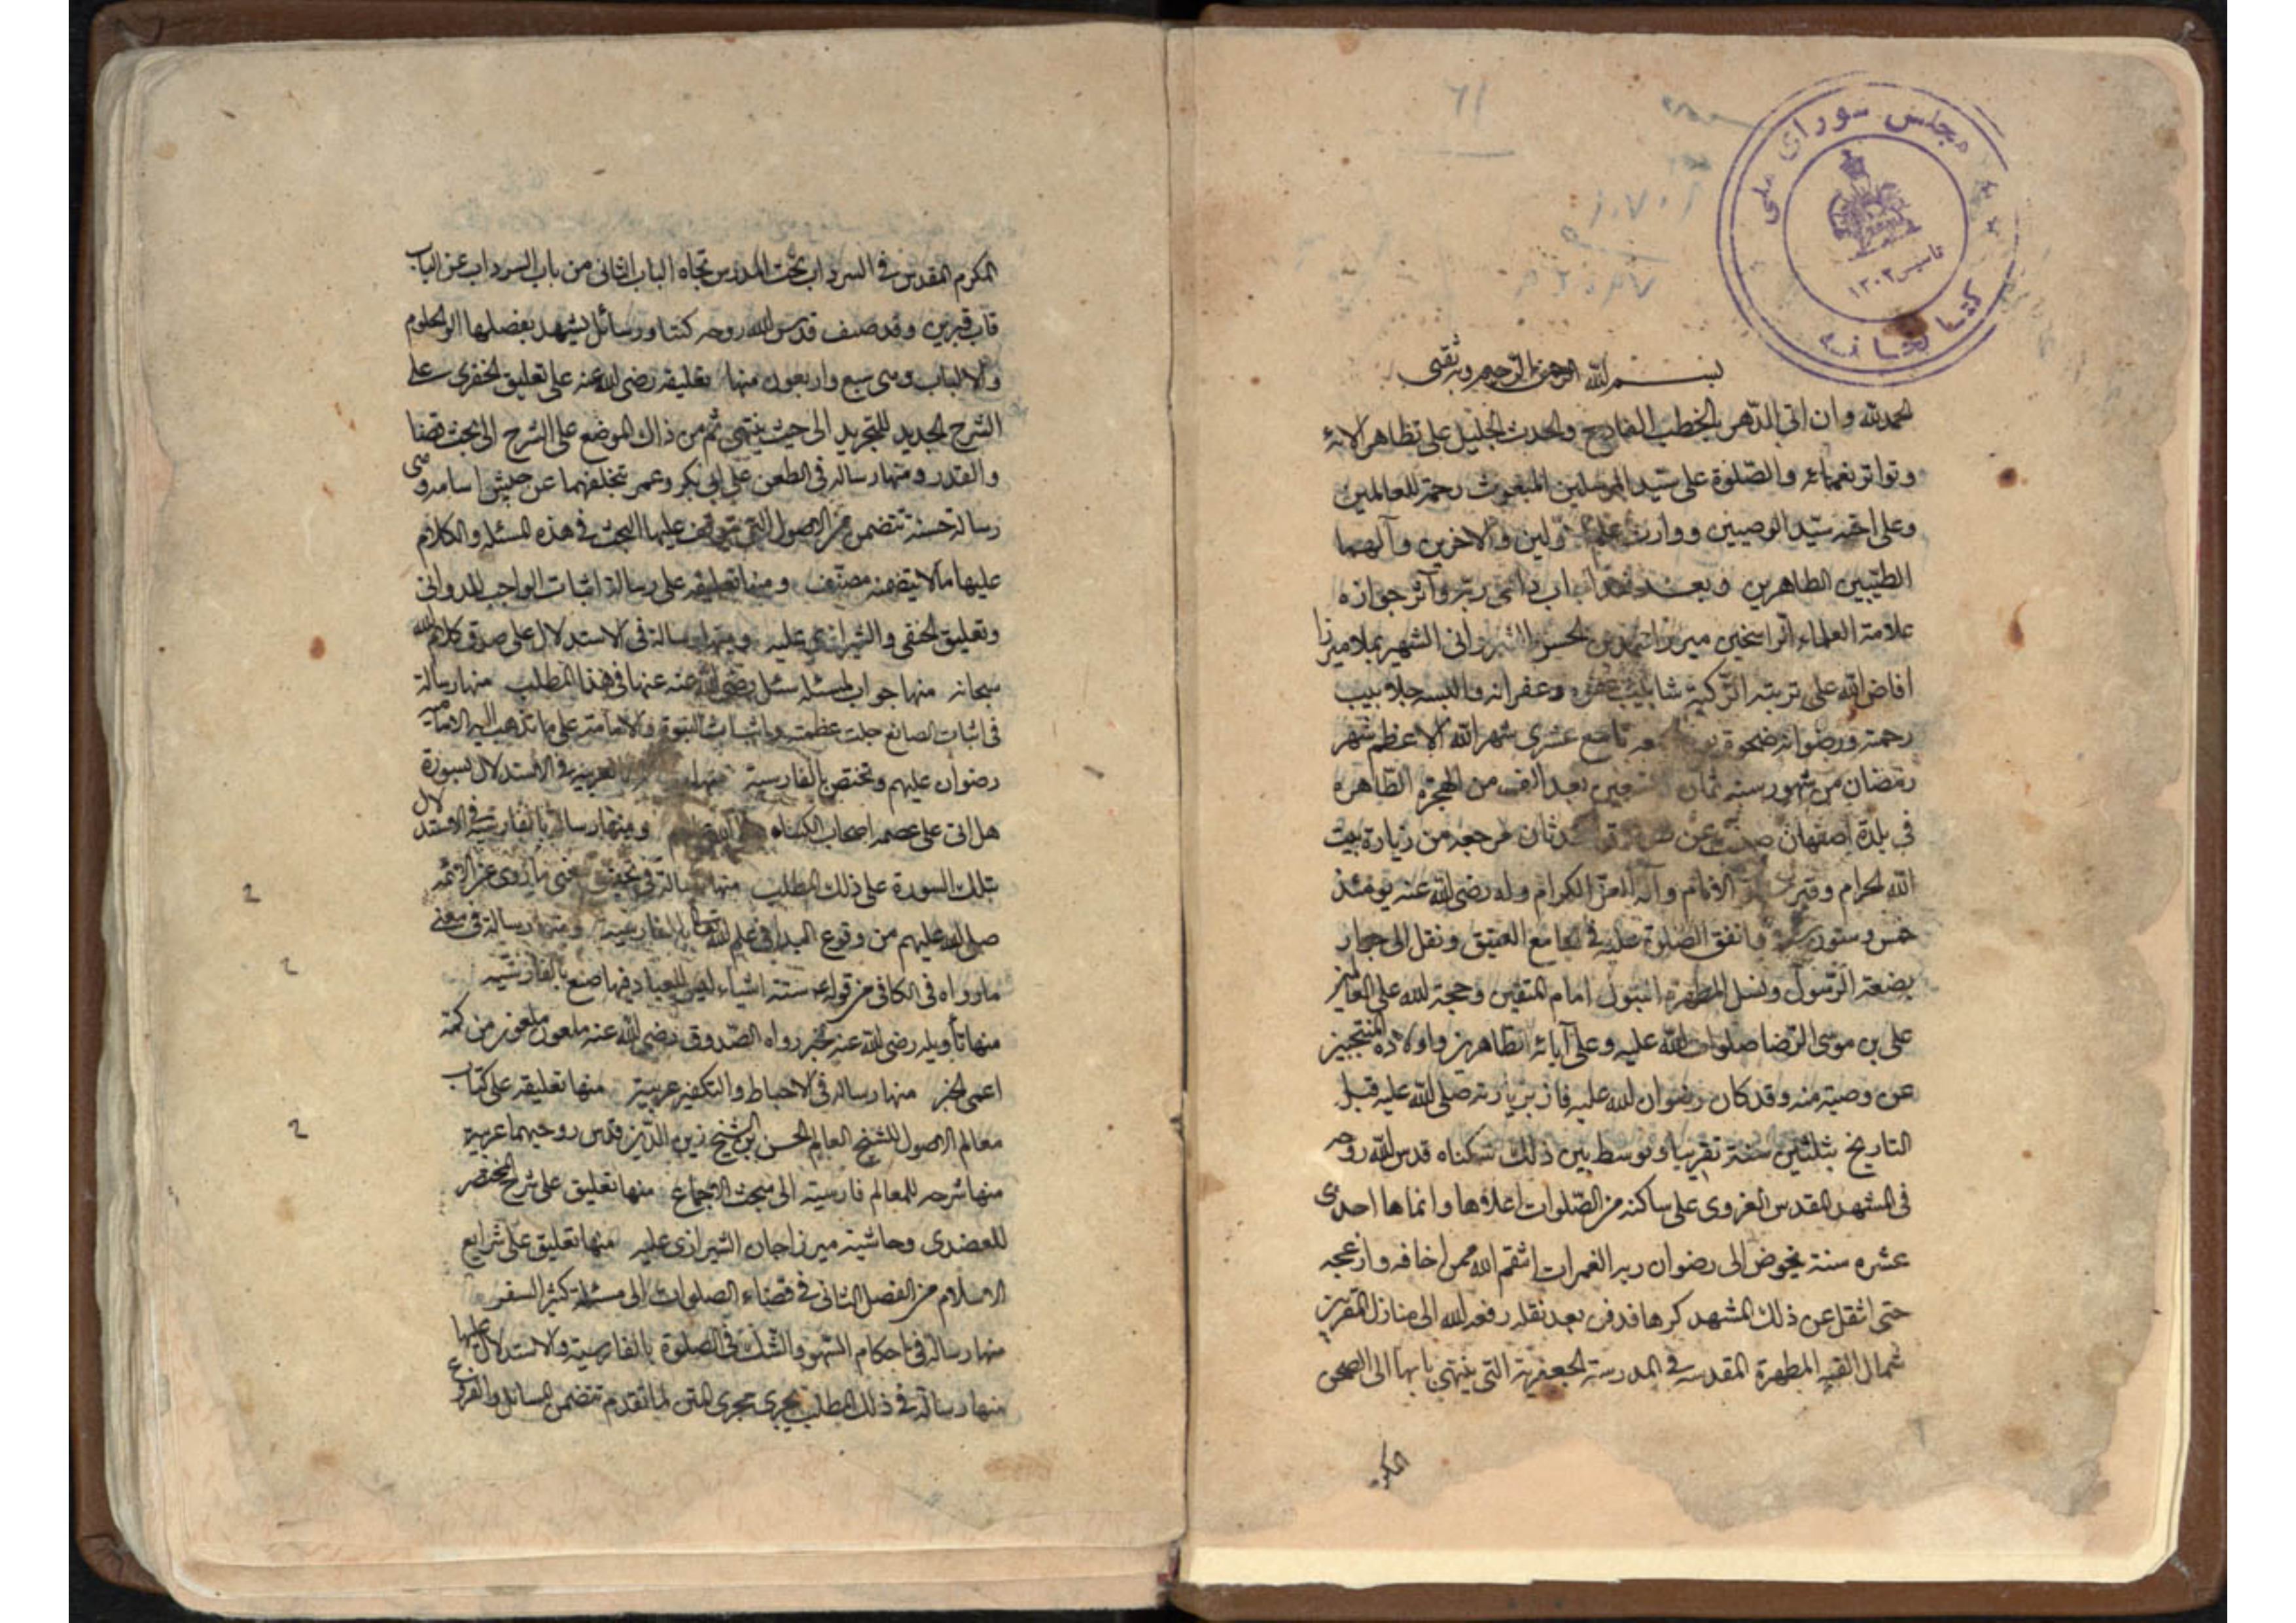 مجلس شورای ملی
تاسیس ۱۳۰۲
کتابخانه
بسم الله الرحمن الرحیم وبه ثقتی
الحمد لله وان اتی الدهر بالخطب الفادح والحدث الجلیل علی تظاهر آلائه
وتواتر نعمائه والصلوة علی سید المرسلین المبعوث رحمة للعالمین
وعلی اخیه سید الوصیین ووارث علم الاولین والآخرین وآلهما
الطیبین الطاهرین وبعد فقد اجاب داعی ربه وآثر جواره
علامة العلماء الراسخین میرزا محمد بن الحسن الشیروانی الشهیر بملا میرزا
افاض الله علی تربته الزکیة شآبیب غفره وغفرانه والبسه جلابیب
رحمته ورضوانه ضحوة تاسع عشری شهر الله الاعظم شهر
رمضان من شهور سنة ثمان وتسعین بعد الف من الهجرة الطاهرة
فی بلدة اصفهان صینت عن الحدثان مرجعه من زیارة بیت
الله الحرام وقبر الانام وآله الغر الکرام وله رضی الله عنه یومئذ
خمس وستون سنة واتفق الصلوة علیه فی الجامع العتیق ونقل الی جوار
بضعة الرسول ونسل المطهرة البتول امام المتقین وحجة الله علی العالمین
علی بن موسی الرضا صلوات الله علیه وعلی آبائه الطاهرین واولاده المنتجبین
عن وصیة منه وقد کان رضوان الله علیه فاز بزیارته صلی الله علیه قبل
التاریخ بثلثین سنة تقریبا وتوسط بین ذلک سکناه قدس الله روحه
فی المشهد المقدس الغروی علی ساکنه من الصلوات اعلاها وانماها احدی
عشره سنة یخوض الی رضوان ربه الغمرات انتقم الله ممن اخافه وازعجه
حتی انتقل عن ذلک المشهد کرها فدفن بعد نقله رفعه الله الی منازل المقربین
شمال القبة المطهرة المقدسه فی المدرسة الجعفریة التی ینتهی بابها الی الصحن
المکرم
المکرم المقدس فی السرداب تحت المدرس تجاه الباب الثانی من باب السرداب عن الباب
قاب قبرین وقد صنف قدس الله روحه کتبا ورسائل یشهد بفضلها اولو الحلوم
والالباب وهی سبع واربعون منها تعلیقه رضی الله عنه علی تعلیق الخفری علی
الشرح الجدید للتجرید الی حیث ینتهی ثم من ذاک الموضع علی الشرح الی بحث القضا
والقدر ومنها رسالة فی الطعن علی ابی بکر وعمر بتخلفهما عن جیش اسامه وهی
رسالة حسنة تتضمن من الاصول التی یتوقف علیها البحث فی هذه المسئلة والکلام
علیها ما لا یتضمنه مصنف ومنها تعلیقه علی رسالة اثبات الواجب للدوانی
وتعلیق الحنفی والشیرازی علیه ومنها رسالة فی الاستدلال علی صدق کلام الله
سبحانه منها جواب لمسئلة سئل رضی الله عنه عنها فی هذا المطلب منها رسالة
فی اثبات الصانع جلت عظمته واثبات النبوة والامامة علی ما تذهب الیه الامامیة
رضوان علیهم وتختص بالفارسیة منها العربیة فی الاستدلال بسورة
هل اتی علی عصمة اصحاب الکساء ومنها رسالة بالفارسیة فی الاستدلال
بتلک السورة علی ذلک المطلب منها رسالة فی تحقیق معنی ما روی عن الائمة
صلی الله علیهم من وقوع البداء فی علم الله تعالی بالفارسیة ومنها رسالة فی معنی
ما رواه فی الکافی من قوله ستة اشیاء لیس للعباد فیها صنع بالفارسیه
منها تأویله رضی الله عنه لخبر رواه الصدوق رضی الله عنه ملعون ملعون من کمه
اعمی الخبر منها رسالة فی الاحباط والتکفیر عربیة منها تعلیقه علی کتاب
معالم الاصول للشیخ العالم الحسن بن الشیخ زین الدین قدس روحیهما عربیة
منها شرحه للمعالم فارسیة الی مبحث الاجماع منها تعلیق علی شرح المختصر
للعضدی وحاشیة میرزا جان الشیرازی علیه منها تعلیق علی شرایع
الاسلام من الفصل الثانی فی قضاء الصلوات الی مسئلة کثیر السفر
منها رسالة فی احکام السهو والشک فی الصلوة بالفارسیة والاستدلال علیها
منها رسالة فی ذلک المطلب یجری مجری المتن لما تقدم تتضمن المسائل والفروع